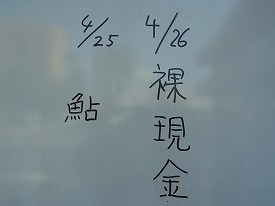 4/26
裸現金
4/25
鮎